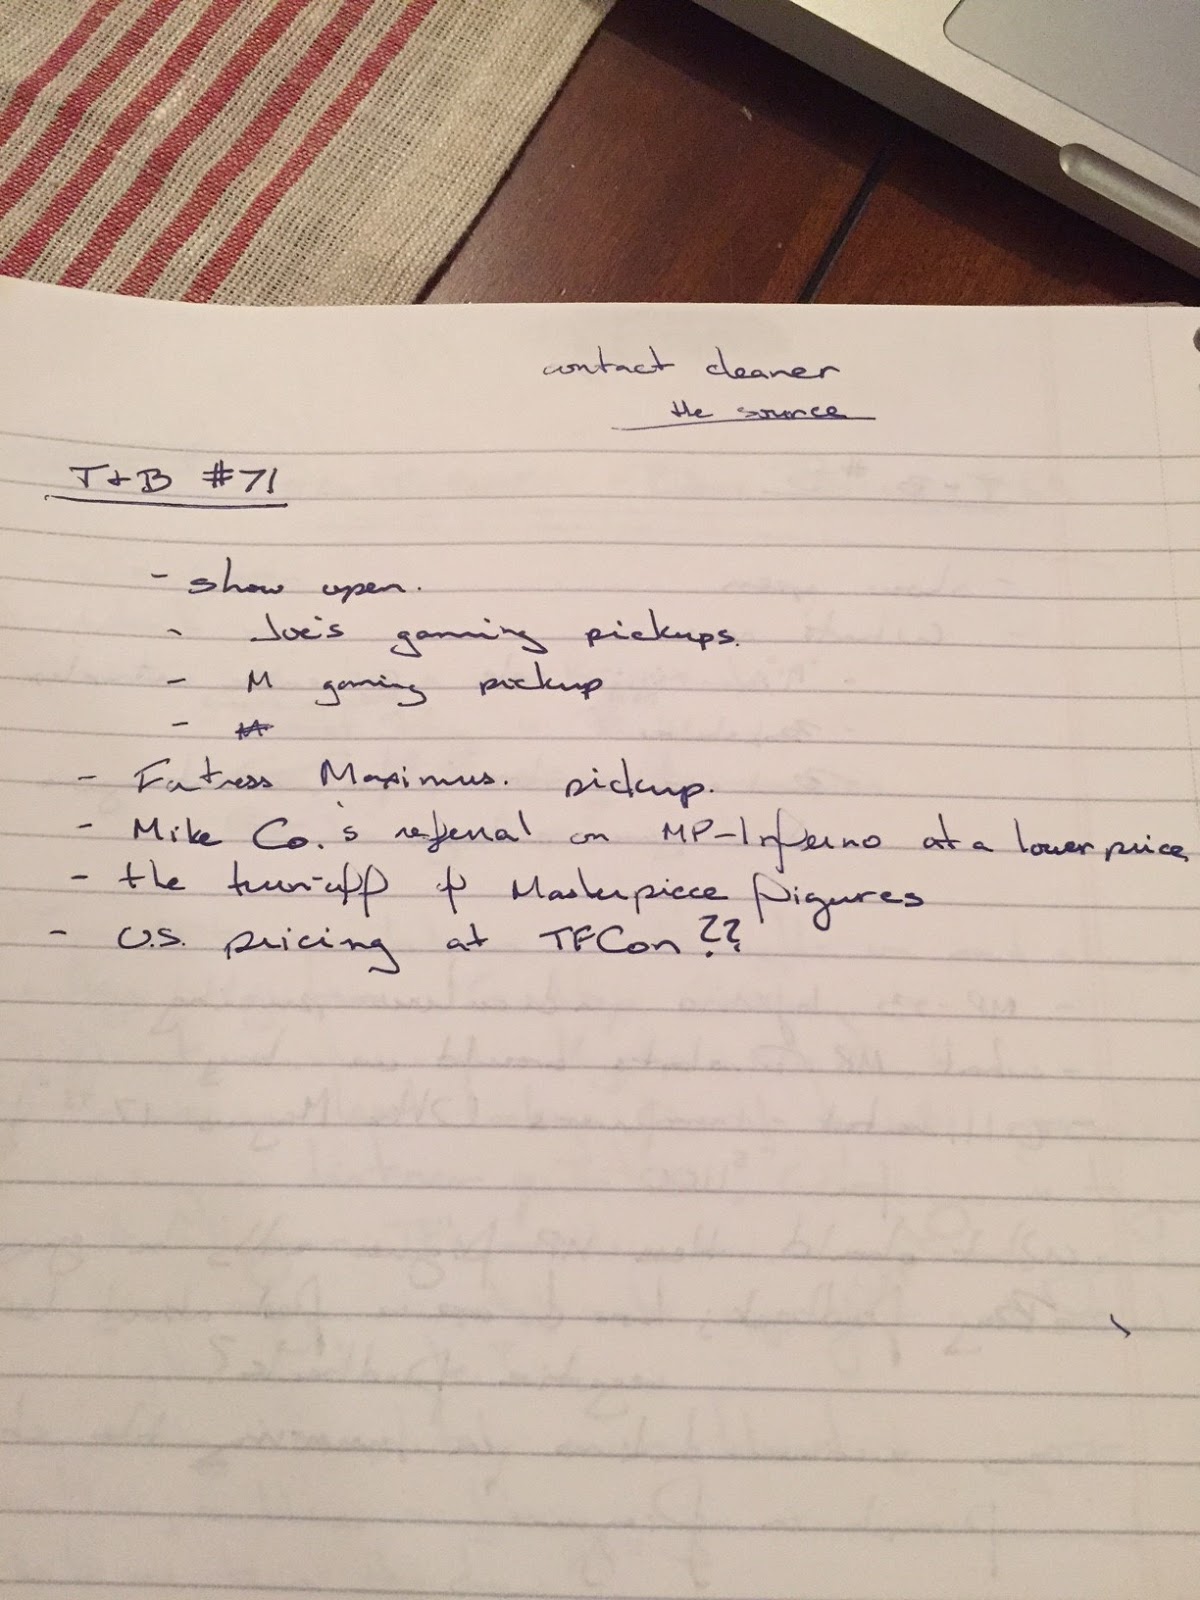 contact cleaner
the source
T+B #71
- show open.
- Joe's gaming pickups.
- M gaming pickup
- M
- Fortress Maximus. pickup.
- Mike Co.'s referral on MP-Inferno at a lower price
- the turn-off of Masterpiece figures
- U.S. pricing at TFCon??